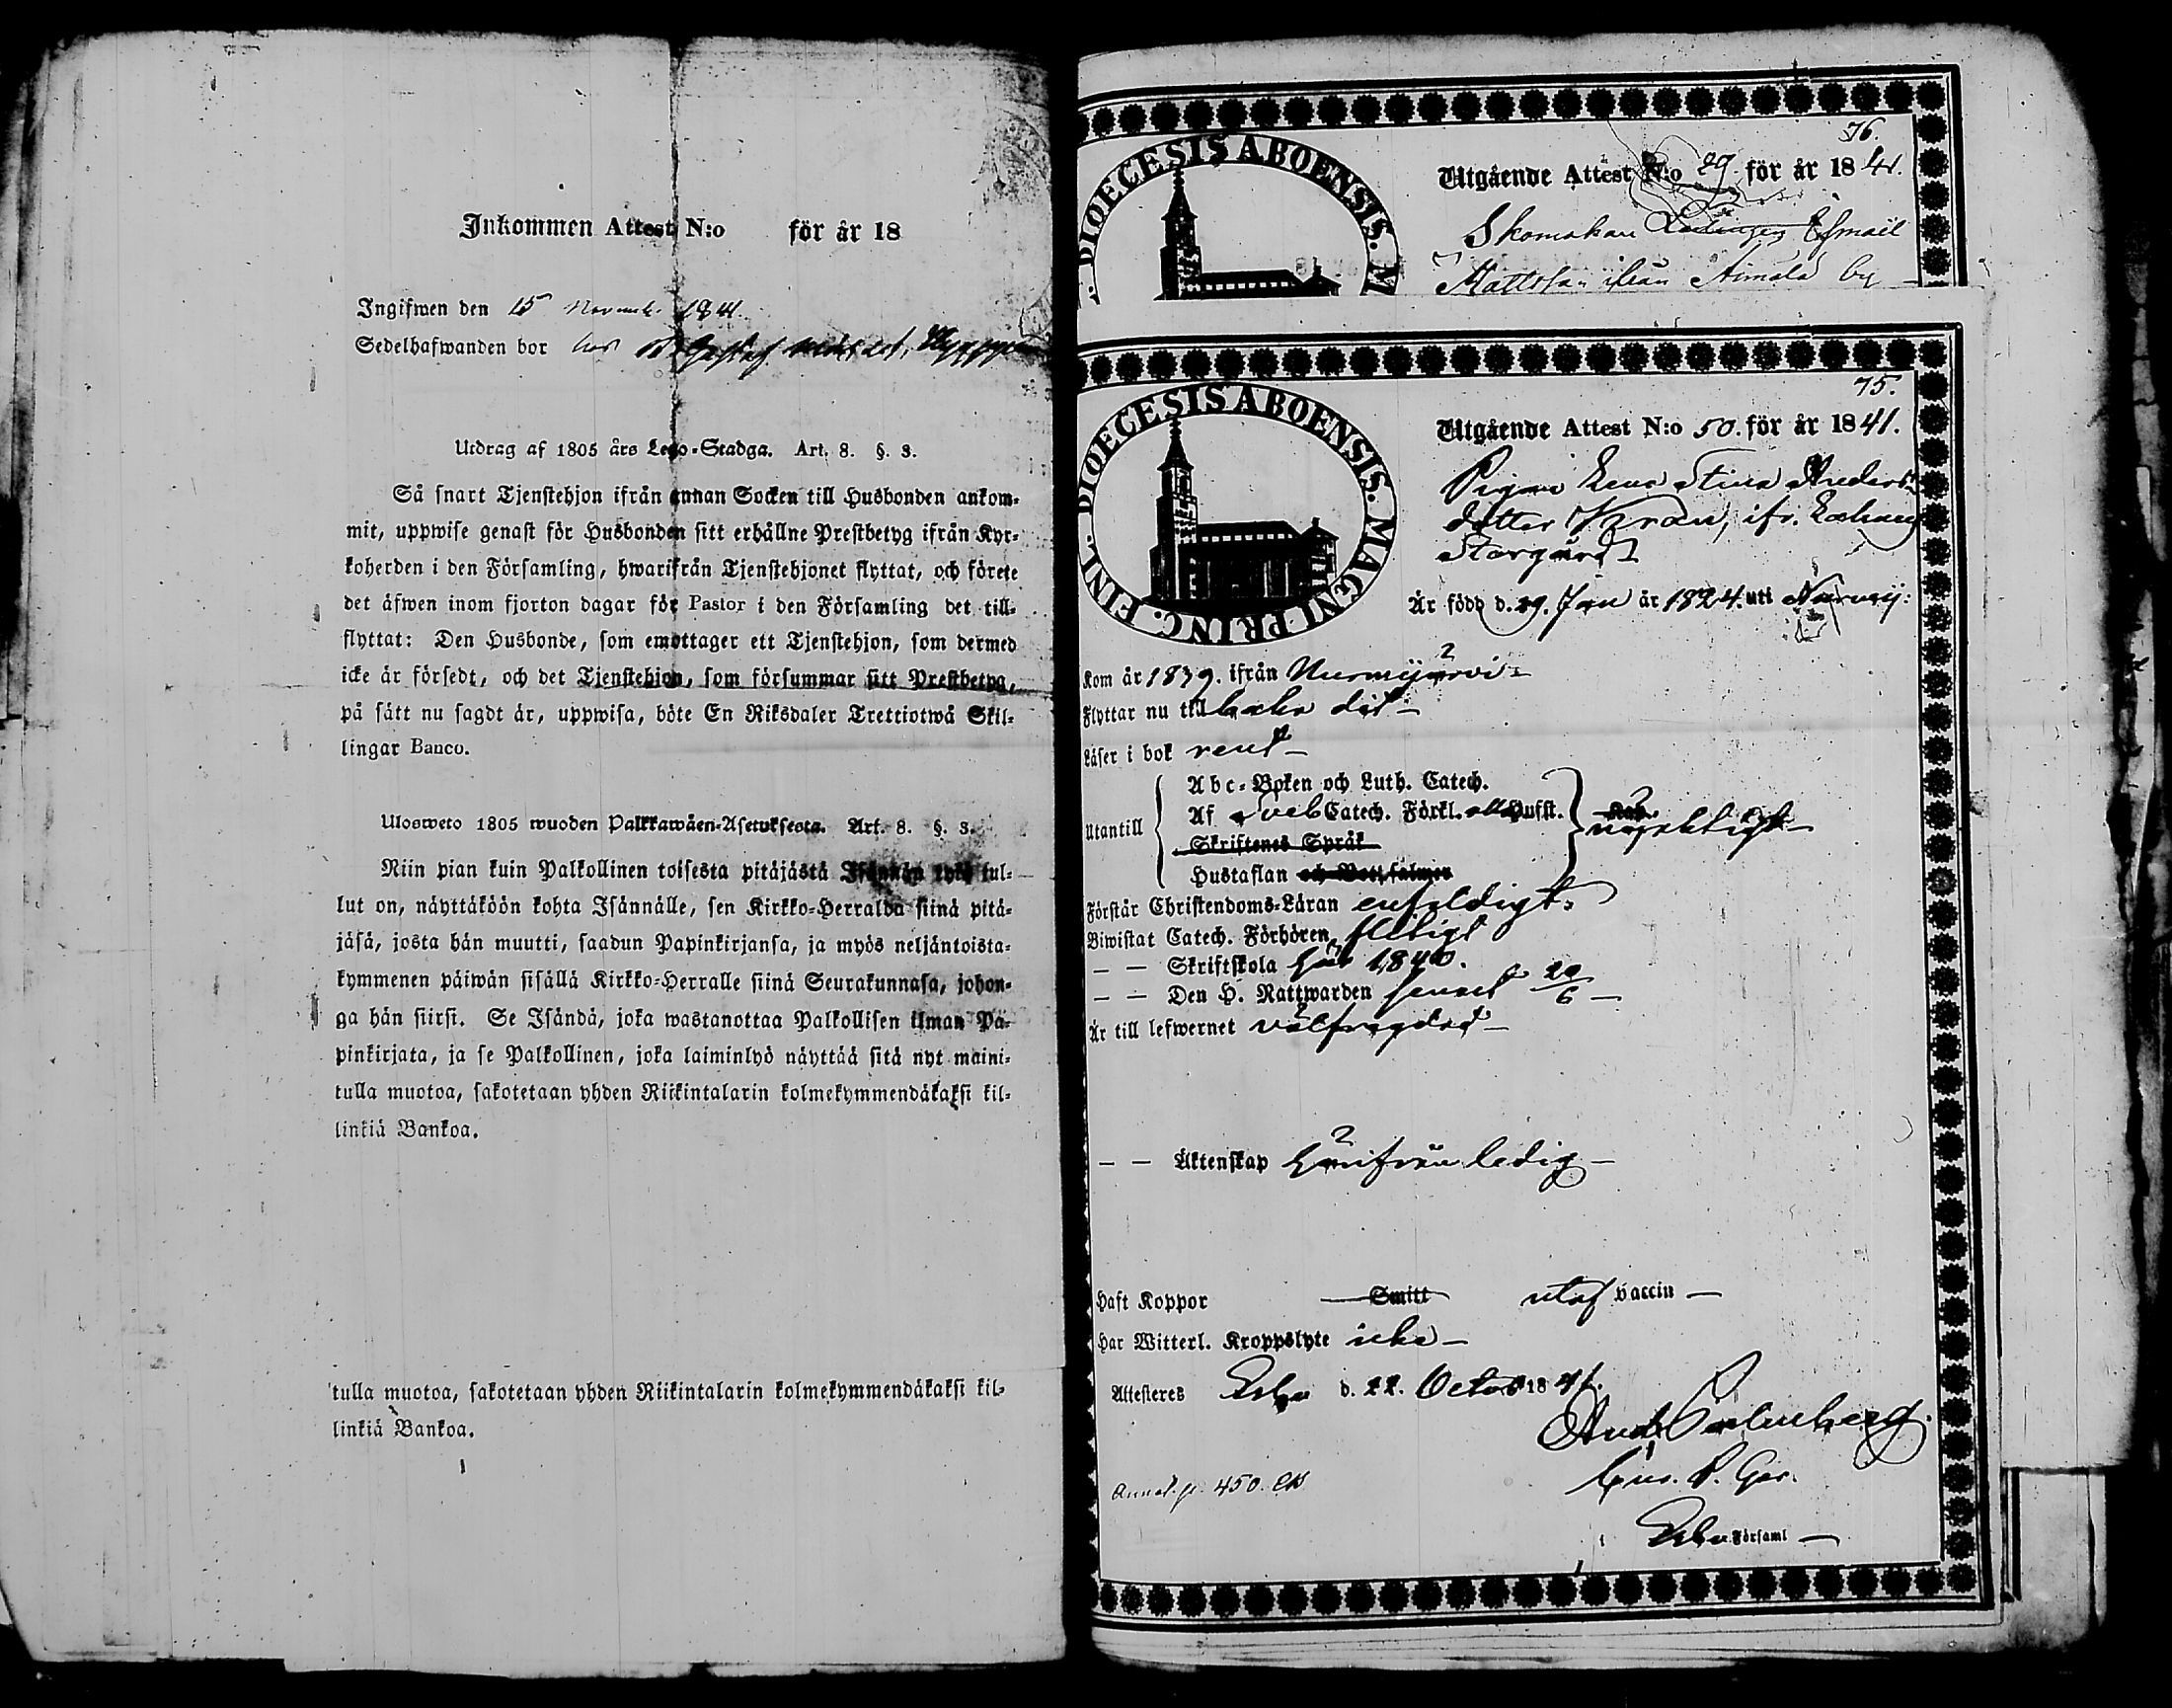 Inkommen Attest N:o för år 18
Ingifwen den 15 Novemb. 1841.
Sedelhafwanden bor hos Gustaf
Utdrag af 1805 års Lego-Stadga. Art. 8. §. 3.
Så snart Tjenstehjon ifrån annan Socken till Husbonden ankom-
mit, uppwise genast för Husbonden sitt erhållne Prestbetyg ifrån Kyr-
koherden i den Församling, hwarifrån Tjenstehjonet flyttat, och förete
det äfwen inom fjorton dagar för Pastor i den Församling det till-
flyttat: Den Husbonde, som emottager ett Tjenstehjon, som dermed
icke är försedt, och det Tjenstehjon, som försummar sitt Prestbetyg,
på sätt nu sagdt är, uppwisa, böte En Riksdaler Trettiotwå Skil-
lingar Banco.
Ulosweto 1805 wuoden Palkkawäen-Asetuksesta. Art. 8. §. 3.
Niin pian kuin Palkollinen toisesta pitäjästä Isännän tykö tul-
lut on, näyttäköön kohta Isännälle, sen Kirkko-Herralda siinä pitä-
jäsä, josta hän muutti, saadun Papinkirjansa, ja myös neljäntoista-
kymmenen päiwän sisällä Kirkko-Herralle siinä Seurakunnasa, johon-
ga hän siirsi. Se Isändä, joka wastanottaa Palkollisen ilman Pa-
pinkirjata, ja se Palkollinen, joka laiminlyö näyttää sitä nyt maini-
tulla muotoa, sakotetaan yhden Riikintalarin kolmekymmendäkaksi kil-
linkiä Bankoa.
tulla muotoa, sakotetaan yhden Riikintalarin kolmekymmendäkaksi kil-
linkiä Bankoa.
76.
DIOECESIS ABOENSIS. M
Utgående Attest N:o 29. för år 1841.
Skomakaren Esmaël
Mattsson ifrån by
75.
DIOECESIS ABOENSIS. MAGNI PRINC. FINL.
Utgående Attest N:o 50. för år 1841.
Pigan Lena Stina Anders-
dotter Krän, ifr.
Storgård
Är född d. 29. Jan år 1824. uti Nurmij:
Kom år 1839. ifrån Nurmijärvi
Flyttar nu till baka dit
Läser i bok rent
Utantill
Abc-Boken och Luth. Catech.
Af Sveb Catech. Förkl. Husst.
Skriftenes Språk
Hustaflan och Bottpsalmer
nöjaktigt
Förstår Christendoms-Läran enfaldigt
Biwistat Catech. Förhören flitigt
— — Skriftskola här 1840.
— — Den H. Nattwarden senast d 20/6
Är till lefwernet välfregdad
— — Äktenskap härifrån ledig
Haft Koppor Smitt utaf vaccin
Har Witterl. Kroppslyte icke
Attesteras Esbo d. 22. Octob 1841.
And.
450.
Esbo Församl